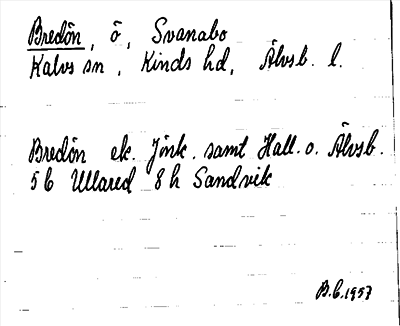 Bredön, ö, Svanabo
Kalvs sn, Kinds hd, Älvsb. l.
Bredön ek. Jönk. samt Hall. o. Älvsb.
5 b Ullared 8 h Sandvik
B.C. 1957